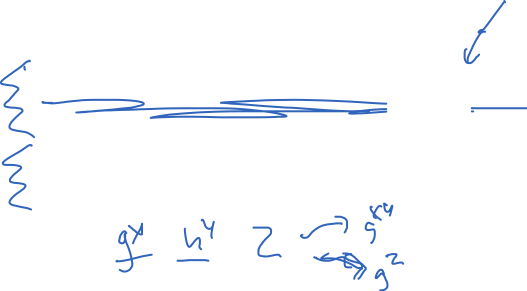 g^x h^y z g^xy
g^z